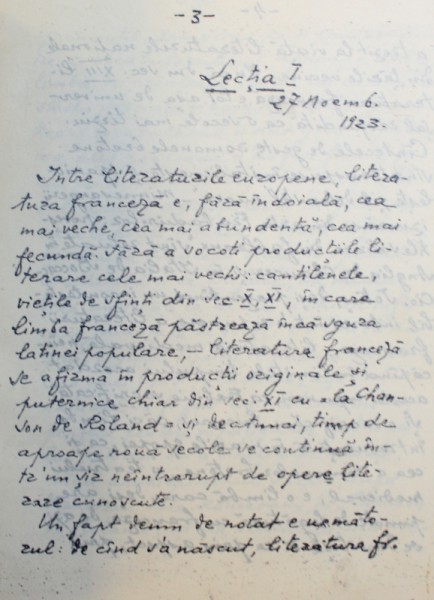 -3-
Lecția I
27 Noemb.
1923.
Între literaturile europene, litera-
tura franceză e, fără îndoială, cea
mai veche, cea mai abundentă, cea mai
fecundă. Fără a socoti producțiile li-
terare cele mai vechi: cantilenele,
viețile de sfinți din sec. X, XI, în care
limba franceză păstrează încă sgura
latinei populare, – literatura franceză
se afirmă în producții originale și
puternice chiar din sec. XI cu «la Chan-
son de Roland» și de atunci, timp de
aproape nouă secole se continuă în-
tr'un șir neîntrerupt de opere lite-
rare cunoscute.
Un fapt demn de notat e următo-
rul: de cînd s'a născut, literatura fr.